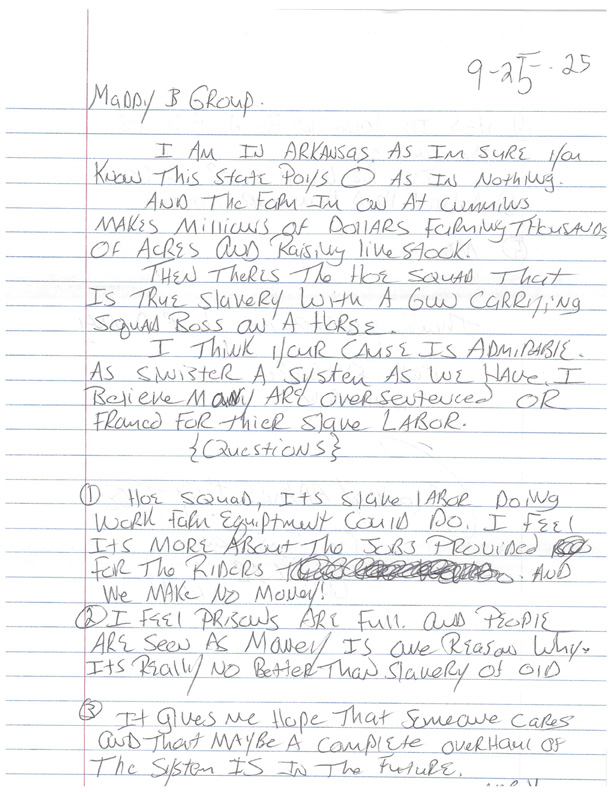 9-25-25
MADDY B GROUP.
I AM IN ARKANSAS, AS IM SURE YOU
KNOW THIS STATE PAYS O AS IN NOTHING.
AND THE FARM IM ON AT CUMMINS
MAKES MILLIONS OF DOLLARS FARMING THOUSANDS
OF ACRES AND RAISING LIVE STOCK.
THEN THERES THE HOE SQUAD THAT
IS TRUE SLAVERY WITH A GUN CARRYING
SQUAD BOSS ON A HORSE.
I THINK YOUR CAUSE IS ADMIRABLE.
AS SINISTER A SYSTEM AS WE HAVE, I
BELIEVE MANY ARE OVERSENTENCED OR
FRAMED FOR THIER SLAVE LABOR.
{QUESTIONS}
① HOE SQUAD, ITS SLAVE LABOR DOING
WORK FARM EQUIPTMENT COULD DO. I FEEL
ITS MORE ABOUT THE JOBS PROVIDED
FOR THE RIDERS. AND
WE MAKE NO MONEY!
② I FEEL PRISONS ARE FULL. AND PEOPLE
ARE SEEN AS MONEY IS ONE REASON WHY.
ITS REALLY NO BETTER THAN SLAVERY OF OLD
③ IT GIVES ME HOPE THAT SOMEONE CARES
AND THAT MAYBE A COMPLETE OVERHAUL OF
THE SYSTEM IS IN THE FUTURE.